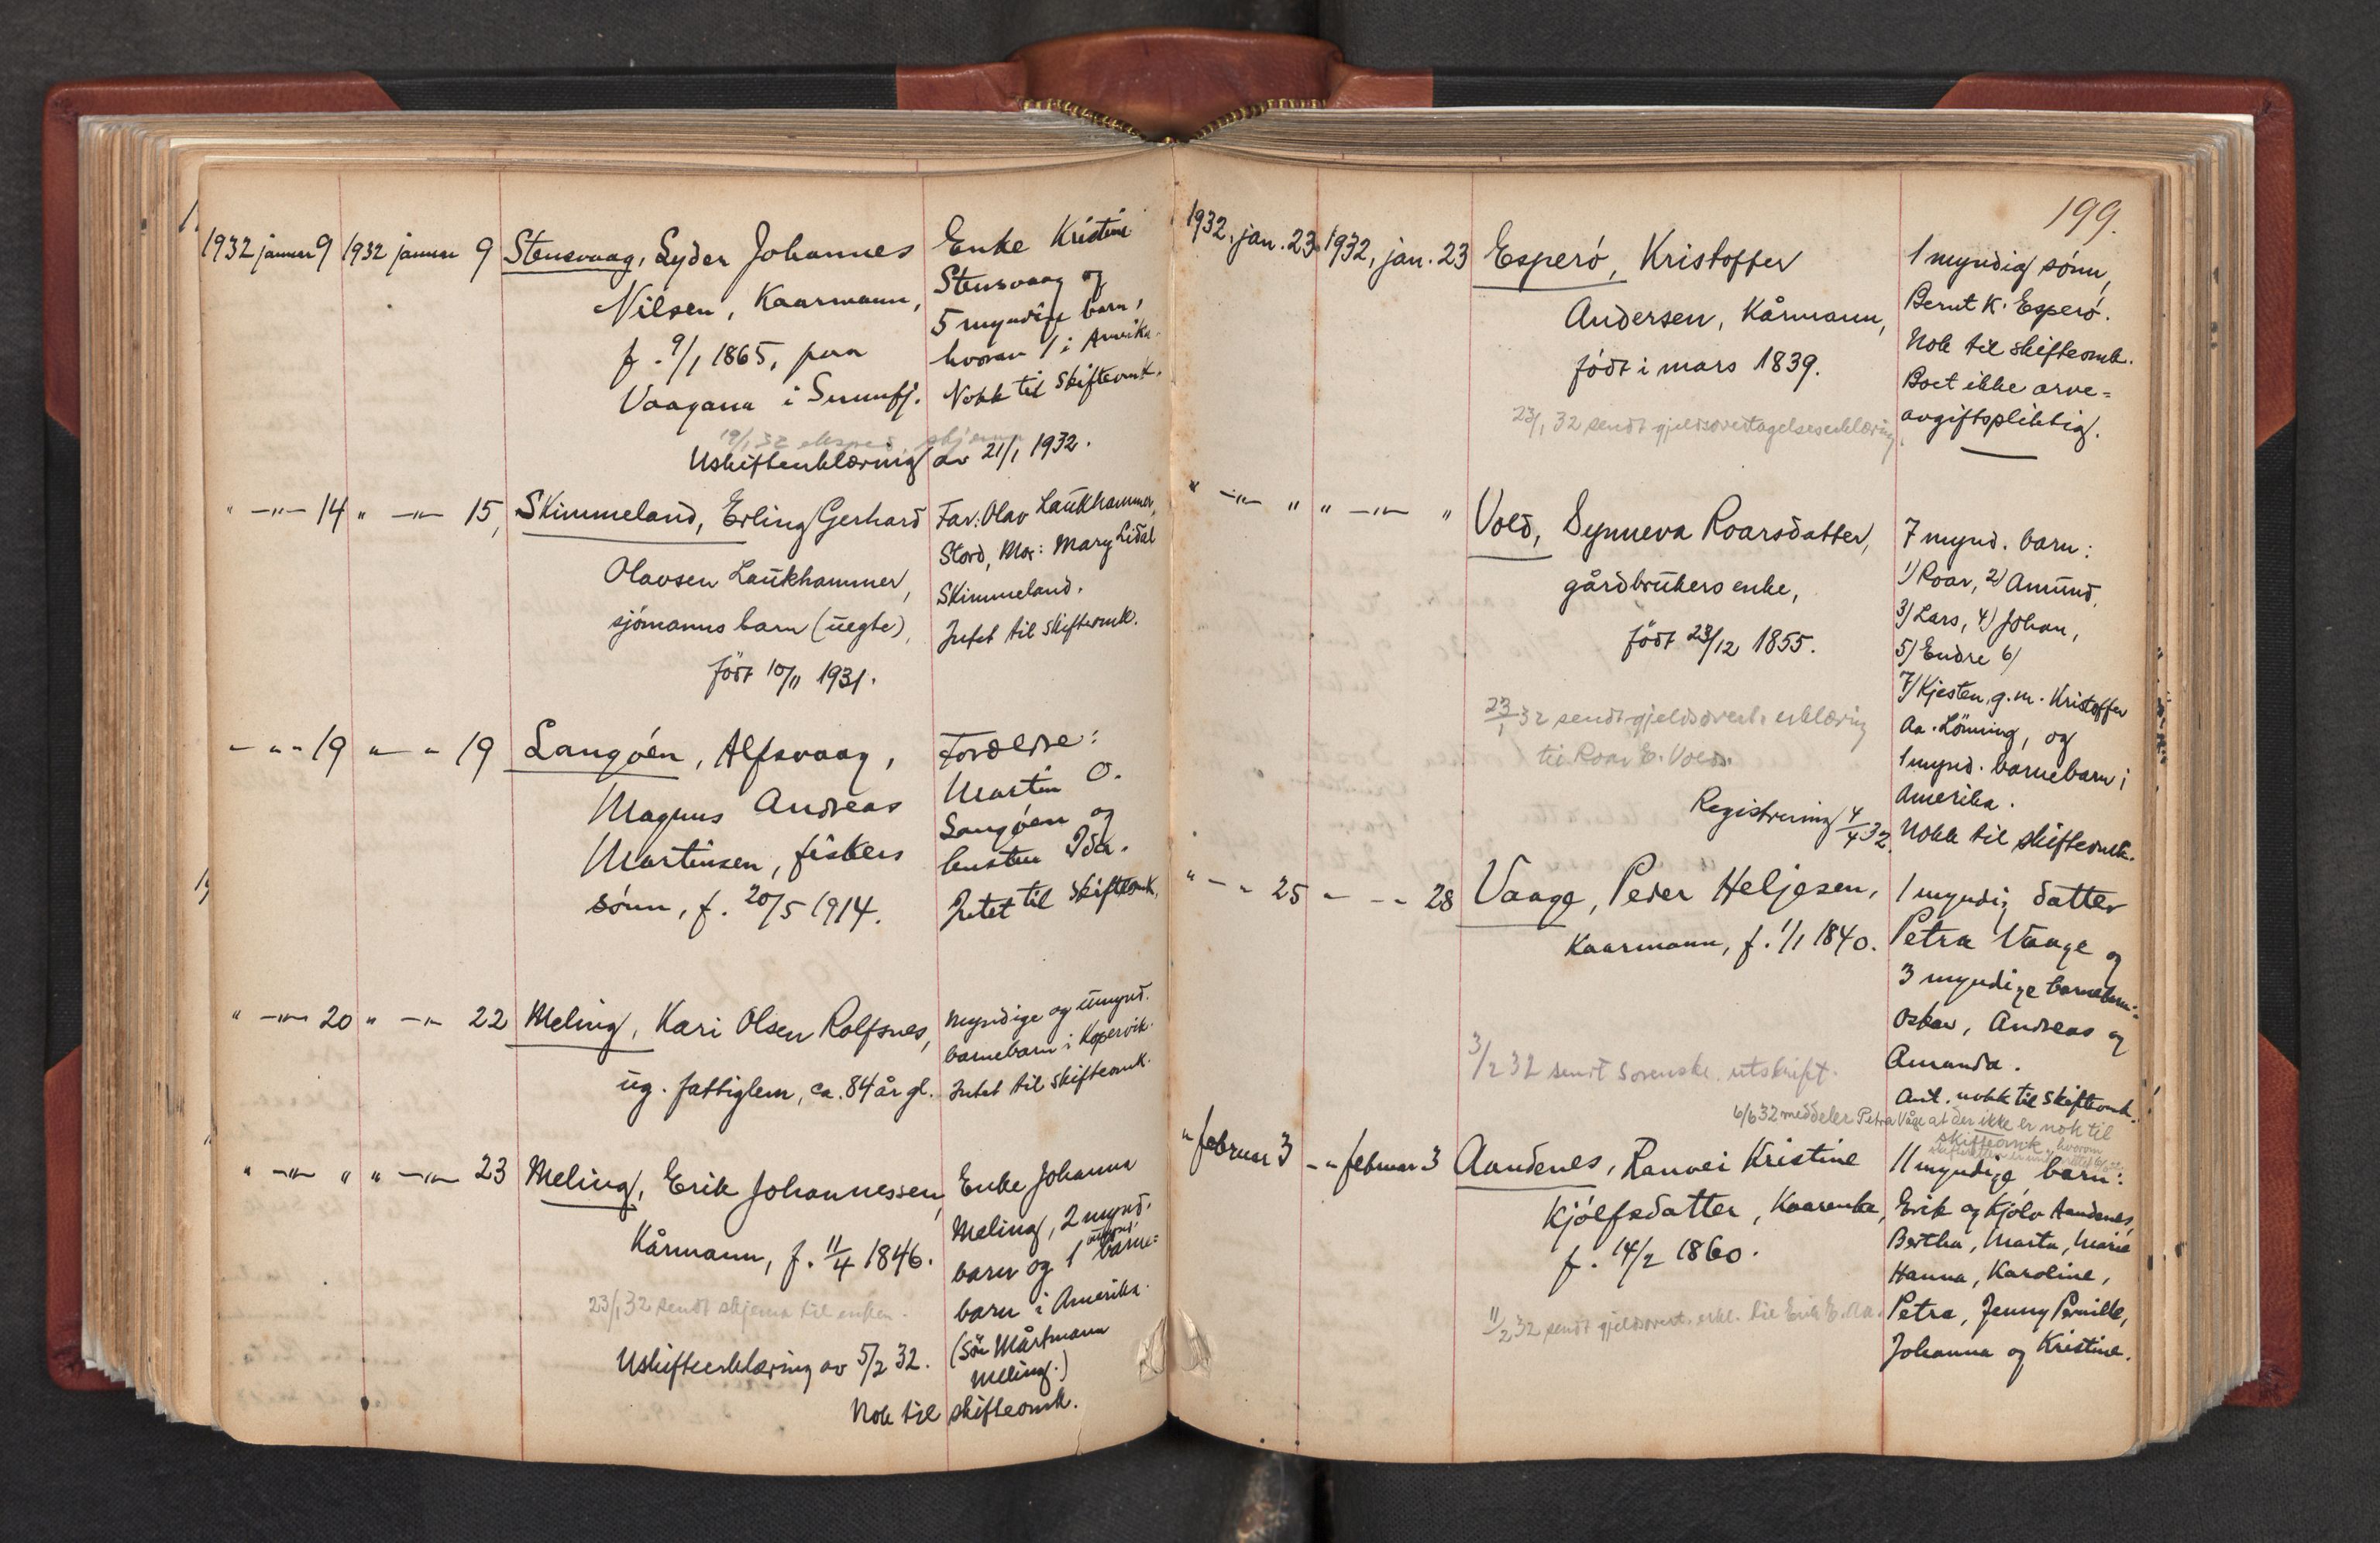 1932 januar 9 1932 januar 9 Stensvaag, Syder Johannes Enke Kristine
Nilsen, Kaarmann, Stensvaag og
5 myndige barn,
f. 9/1 1865, paa hvorav 1 i Amerika.
Vaagana i Sunnfj. Nokk til skifteomk.
19/1 32 skjema
Uskifteerklæring av 21/1 1932.
" —"— 14 " —"— 15, Skimmeland, Erling Gerhard Far: Olav Laukhammer,
Stord, Mor: Mary Lidal
Olavsen Laukhammer, Skimmeland.
sjómanns barn (uegte), Intet til skifteomk.
födt 10/11 1931.
" " " 19 " — " 19 Langóen, Alfsvaag, Forældre:
Magnus Andreas Martin O.
Langóen og
Martinsen, fiskers hustru Ida.
sónn, f. 20/5 1914. Intet til skifteomk.
" —"— 20 " —"— 22 Meling, Kari Olsen Rolfsnes, Myndige og umynd.
barnebarn i Kopervik.
ug. fattiglem, ca. 84 år gl. Intet til skifteomk.
" —"— " " —"— 23 Meling, Erik Johannessen, Enke Johanna
Meling, 2 mynd.
Kårmann, f. 11/4 1846. barn og 1 barne=
23/1 32 sendt skjema til enken. barn i Amerika.
Uskifteerklæring av 5/2 32. (Sön Mårtmann
Meling.)
Nok til skifteomk.
199.
1932, jan. 23. 1932, jan. 23 Esperó, Kristoffer 1 myndig sónn,
Andersen, Kårmann, Bernt K. Esperó.
födt i mars 1839. Nok til skifteomk.
Boet ikke arve=
23/1 32 sendt gjeldsovertagelseserklæring avgiftspliktig.
" —"— " " —"— " Vold, Synneva Roarsdatter, 7 mynd. barn:
gårdbrukers enke, 1) Roar, 2) Amund,
3) Lars, 4) Johan,
födt 23/12 1855. 5) Endre 6)
7) Kjesten, g.m. Kristoffer
23/1 32 sendt gjeldsovert. erklæring Aa. Lönning, og
til Roar E. Vold. 1 mynd. barnebarn i
Amerika.
Registrering 4/4 32. Nokk til skifteomk.
" — " 25 " — " 28 Vaage, Peder Heljesen, 1 myndig datter
Kaarmann, f. 1/1 1840. Petra Vaage og
3 myndige barnebarn:
Oskar, Andreas og
3/2 32 sendt sorenskr. utskrift. Amanda.
Ant. nokk til skifteomk.
6/6 32 meddeler Petra Våge at der ikke er nok til
skifteomk., hvorom
" februar 3 — " februar 3 Aandenes, Ranvei Kristine 11 myndige barn:
Kjólfsdatter, Kaarenke, Erik og Kjólv Aandenes,
f. 14/2 1860. Bertha, Marta, Marie
Hanna, Karoline,
11/2 32 sendt gjeldsovert. erkl. til Erik E. Aa. Petra, Jenny Pernille,
Johanna og Kristine.